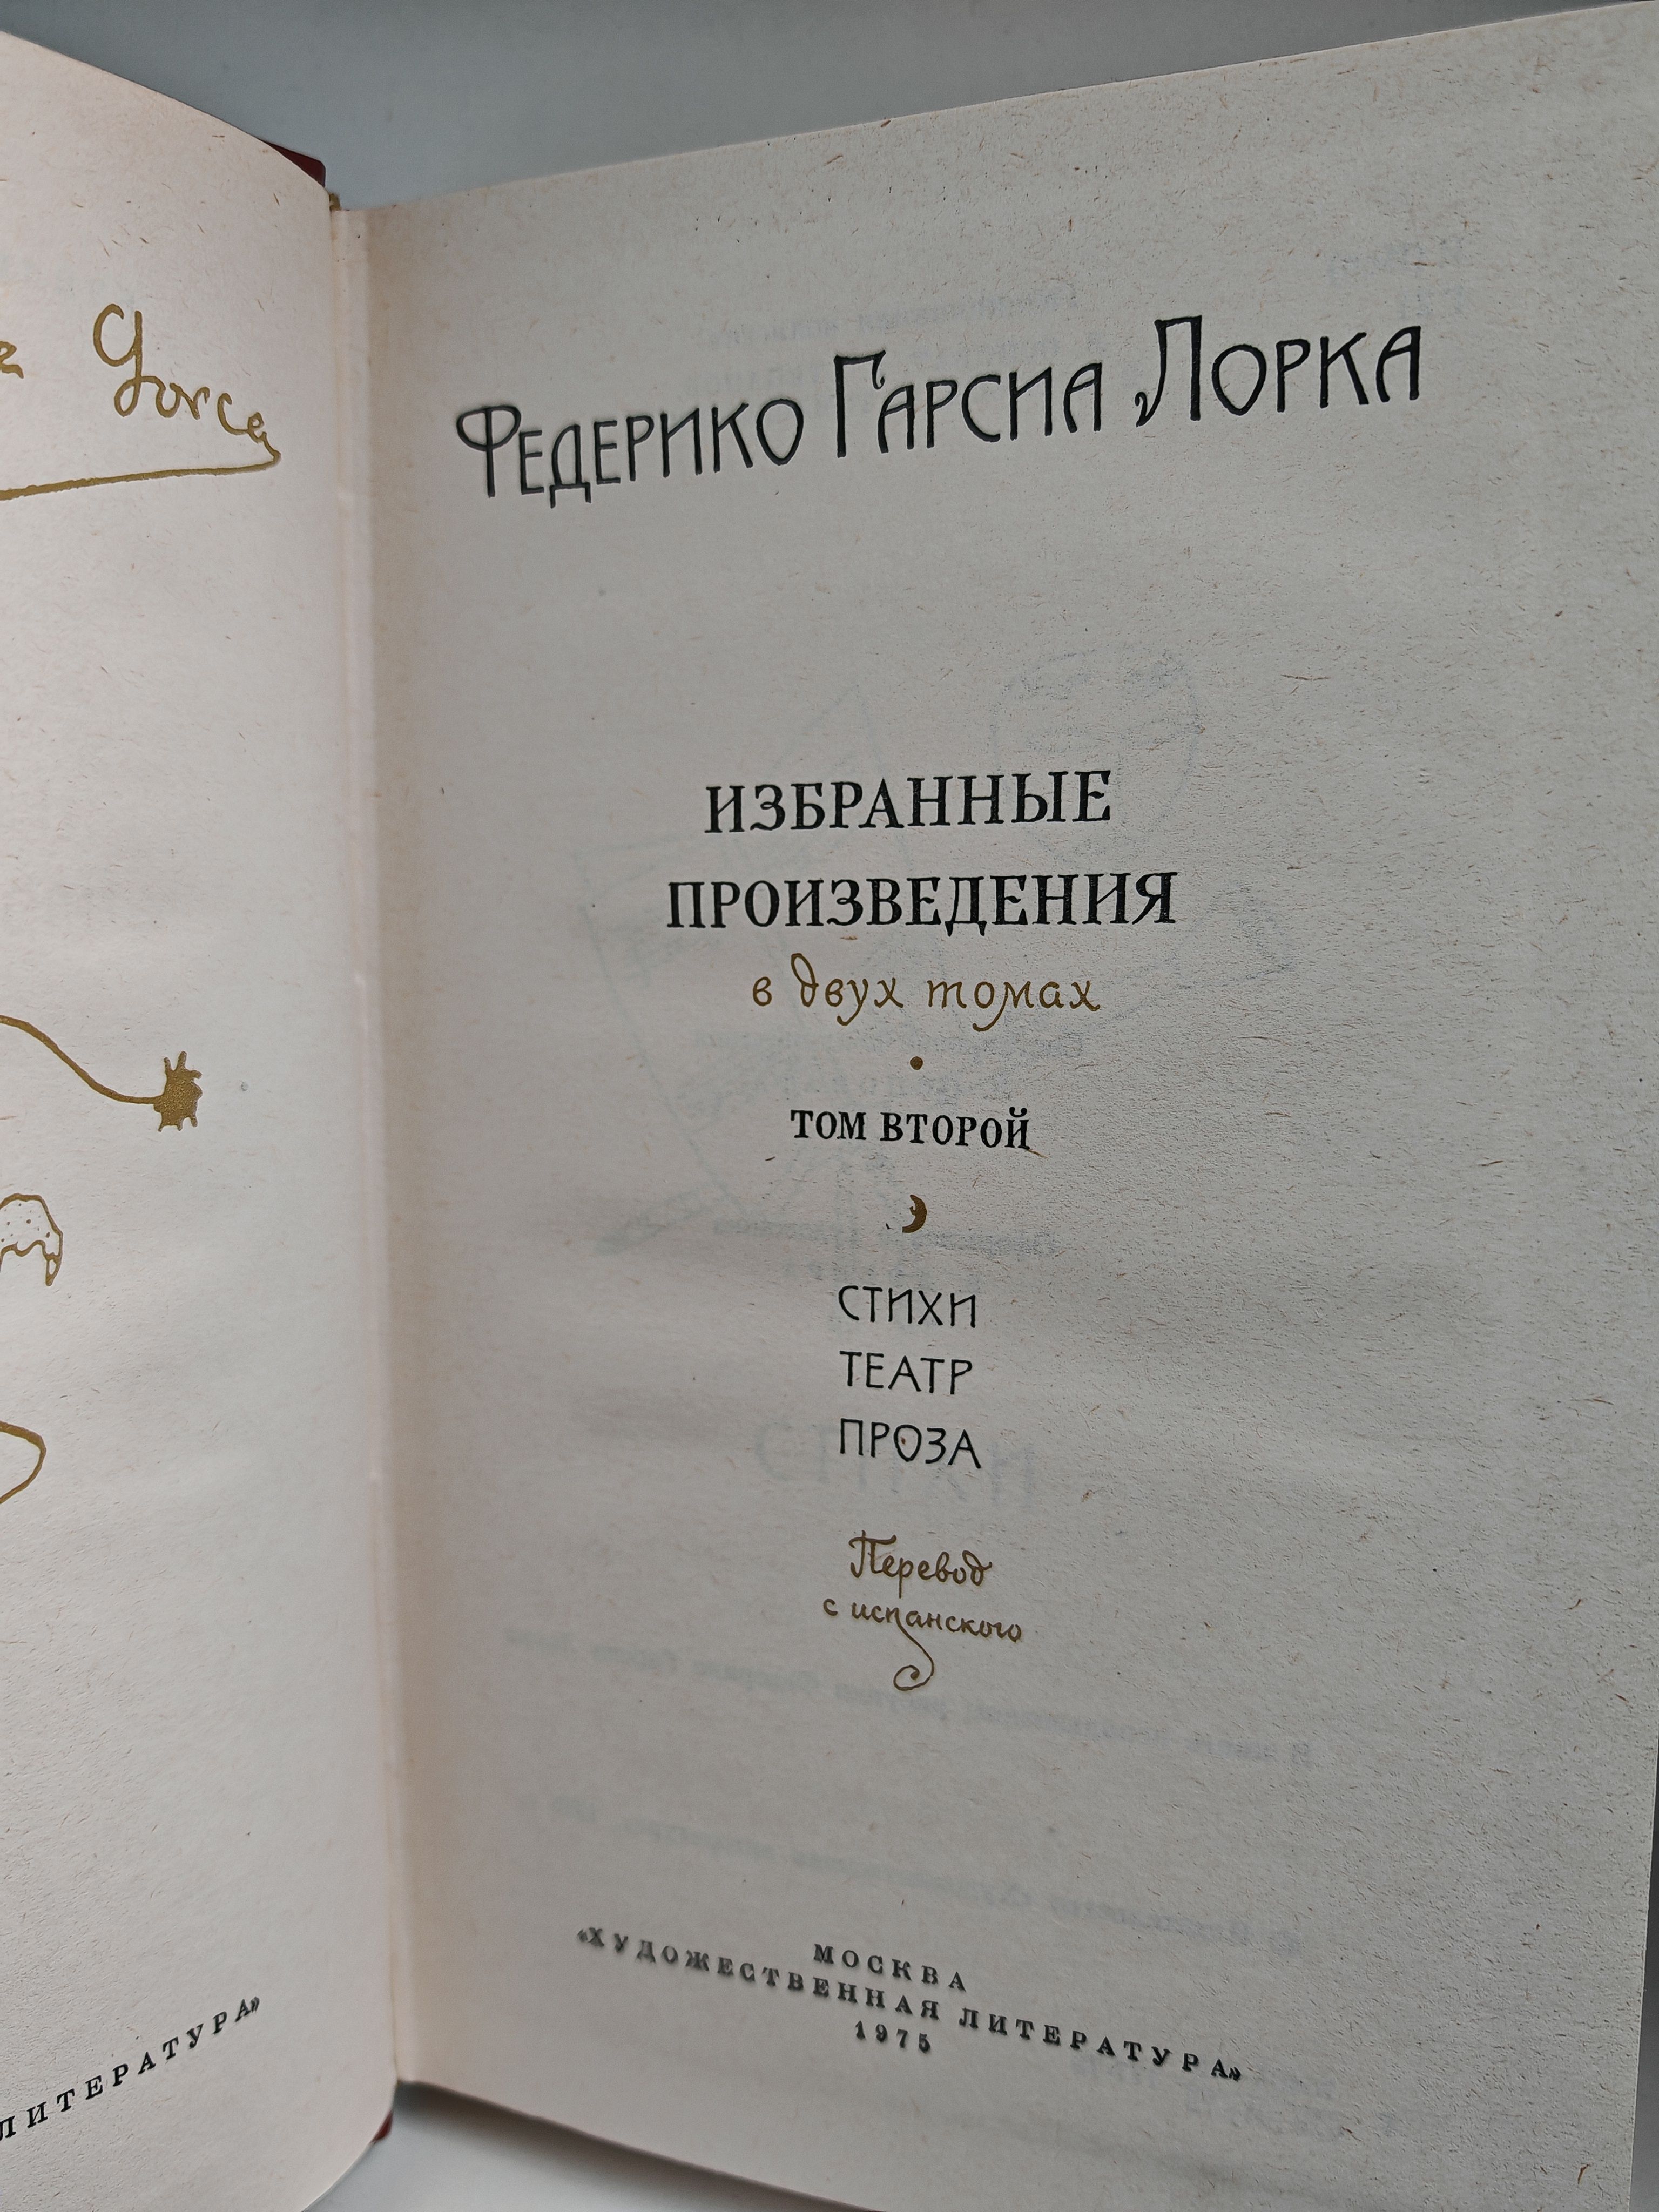 Lorca
ЛИТЕРАТУРА»
Федерико Гарсиа Лорка
ИЗБРАННЫЕ
ПРОИЗВЕДЕНИЯ
в двух томах
ТОМ ВТОРОЙ
СТИХИ
ТЕАТР
ПРОЗА
Перевод
с испанского
МОСКВА
«ХУДОЖЕСТВЕННАЯ ЛИТЕРАТУРА»
1975